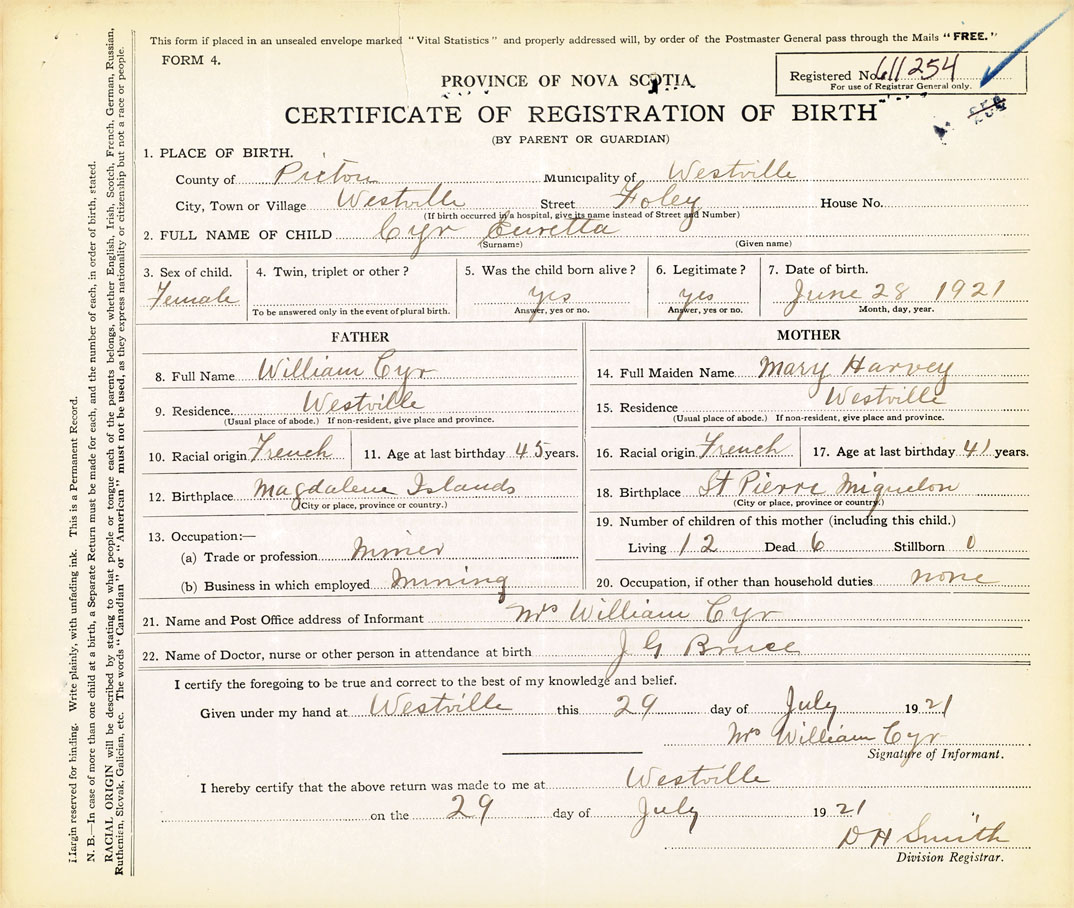 This form if placed in an unsealed envelope marked "Vital Statistics" and properly addressed will, by order of the Postmaster General pass through the Mails "FREE."
FORM 4.
Registered No. 611254
For use of Registrar General only.
PROVINCE OF NOVA SCOTIA
CERTIFICATE OF REGISTRATION OF BIRTH
(BY PARENT OR GUARDIAN)
1. PLACE OF BIRTH.
County of Pictou Municipality of Westville
City, Town or Village Westville Street Foley House No.
(If birth occurred in a hospital, give its name instead of Street and Number)
2. FULL NAME OF CHILD Cyr Euretta
(Surname) (Given name)
3. Sex of child. 4. Twin, triplet or other? 5. Was the child born alive? 6. Legitimate? 7. Date of birth.
Female yes yes June 28 1921
To be answered only in the event of plural birth. Answer, yes or no. Answer, yes or no. Month, day, year.
FATHER
8. Full Name William Cyr
9. Residence. Westville
(Usual place of abode.) If non-resident, give place and province.
10. Racial origin French 11. Age at last birthday 45 years.
12. Birthplace Magdalene Islands
(City or place, province or country.)
13. Occupation:—
(a) Trade or profession Miner
(b) Business in which employed Mining
MOTHER
14. Full Maiden Name Mary Harvey
15. Residence Westville
(Usual place of abode.) If non-resident, give place and province.
16. Racial origin French 17. Age at last birthday 41 years.
18. Birthplace St Pierre Miquelon
(City or place, province or country.)
19. Number of children of this mother (including this child.)
Living 12 Dead 6 Stillborn 0
20. Occupation, if other than household duties none
21. Name and Post Office address of Informant Mrs William Cyr
22. Name of Doctor, nurse or other person in attendance at birth J G Bruce
I certify the foregoing to be true and correct to the best of my knowledge and belief.
Given under my hand at Westville this 29 day of July 1921
Mrs William Cyr
Signature of Informant.
I hereby certify that the above return was made to me at Westville
on the 29 day of July 1921
D H Smith
Division Registrar.
Margin reserved for binding. Write plainly, with unfading ink. This is a Permanent Record.
N. B.—In case of more than one child at a birth, a Separate Return must be made for each, and the number of each, in order of birth, stated.
RACIAL ORIGIN will be described by stating to what people or tongue each of the parents belongs, whether English, Irish, Scotch, French, German, Russian,
Ruthenien, Slovak, Galician, etc. The words "Canadian" or "American" must not be used, as they express nationality or citizenship but not a race or people.